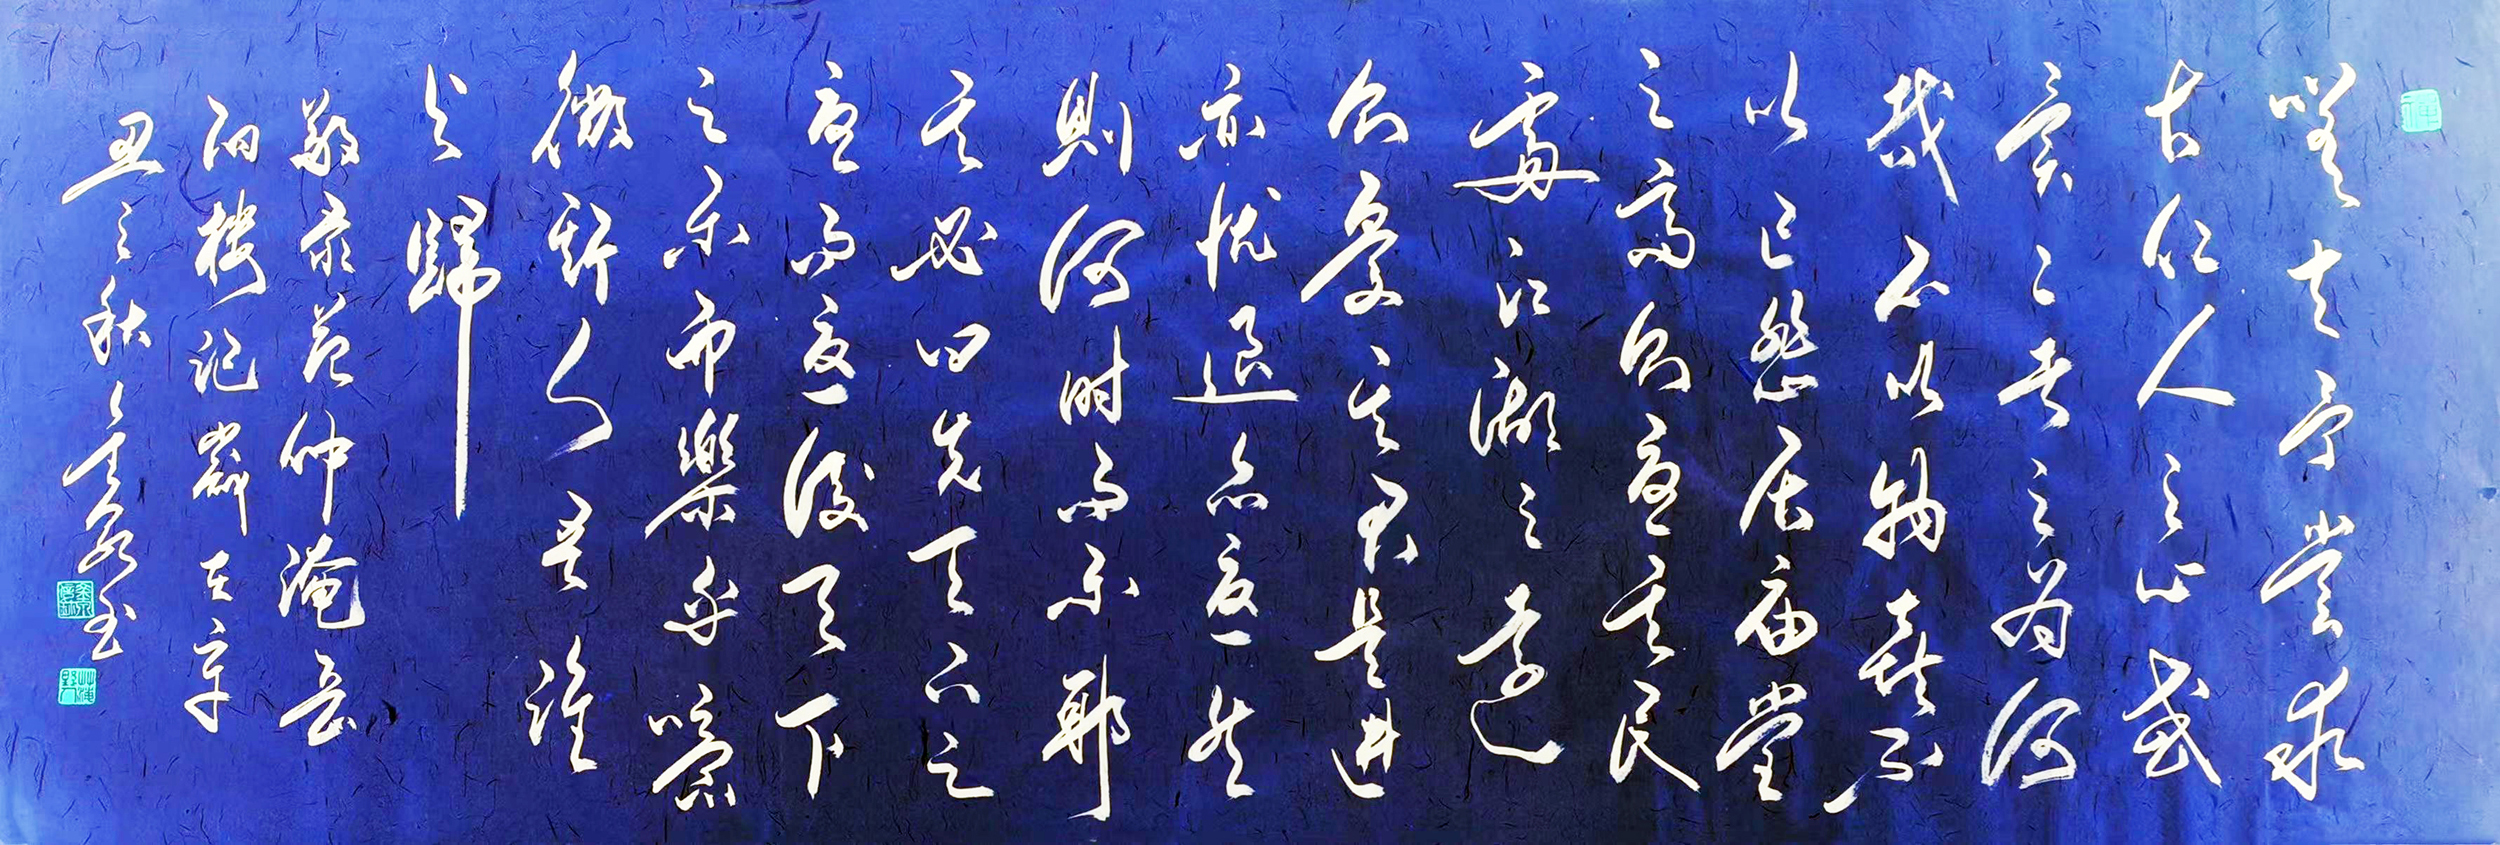 嗟夫予嘗求
古仁人之心或
異二者之為何
哉不以物喜不
以己悲居庙堂
之高則憂其民
處江湖之遠
則憂其君是進
亦憂退亦憂然
則何時而乐耶
其必曰先天下之
憂而憂後天下
之乐而樂乎噫
微斯人吾誰
与歸
敬录范仲淹岳
阳楼记歲在辛
丑之秋